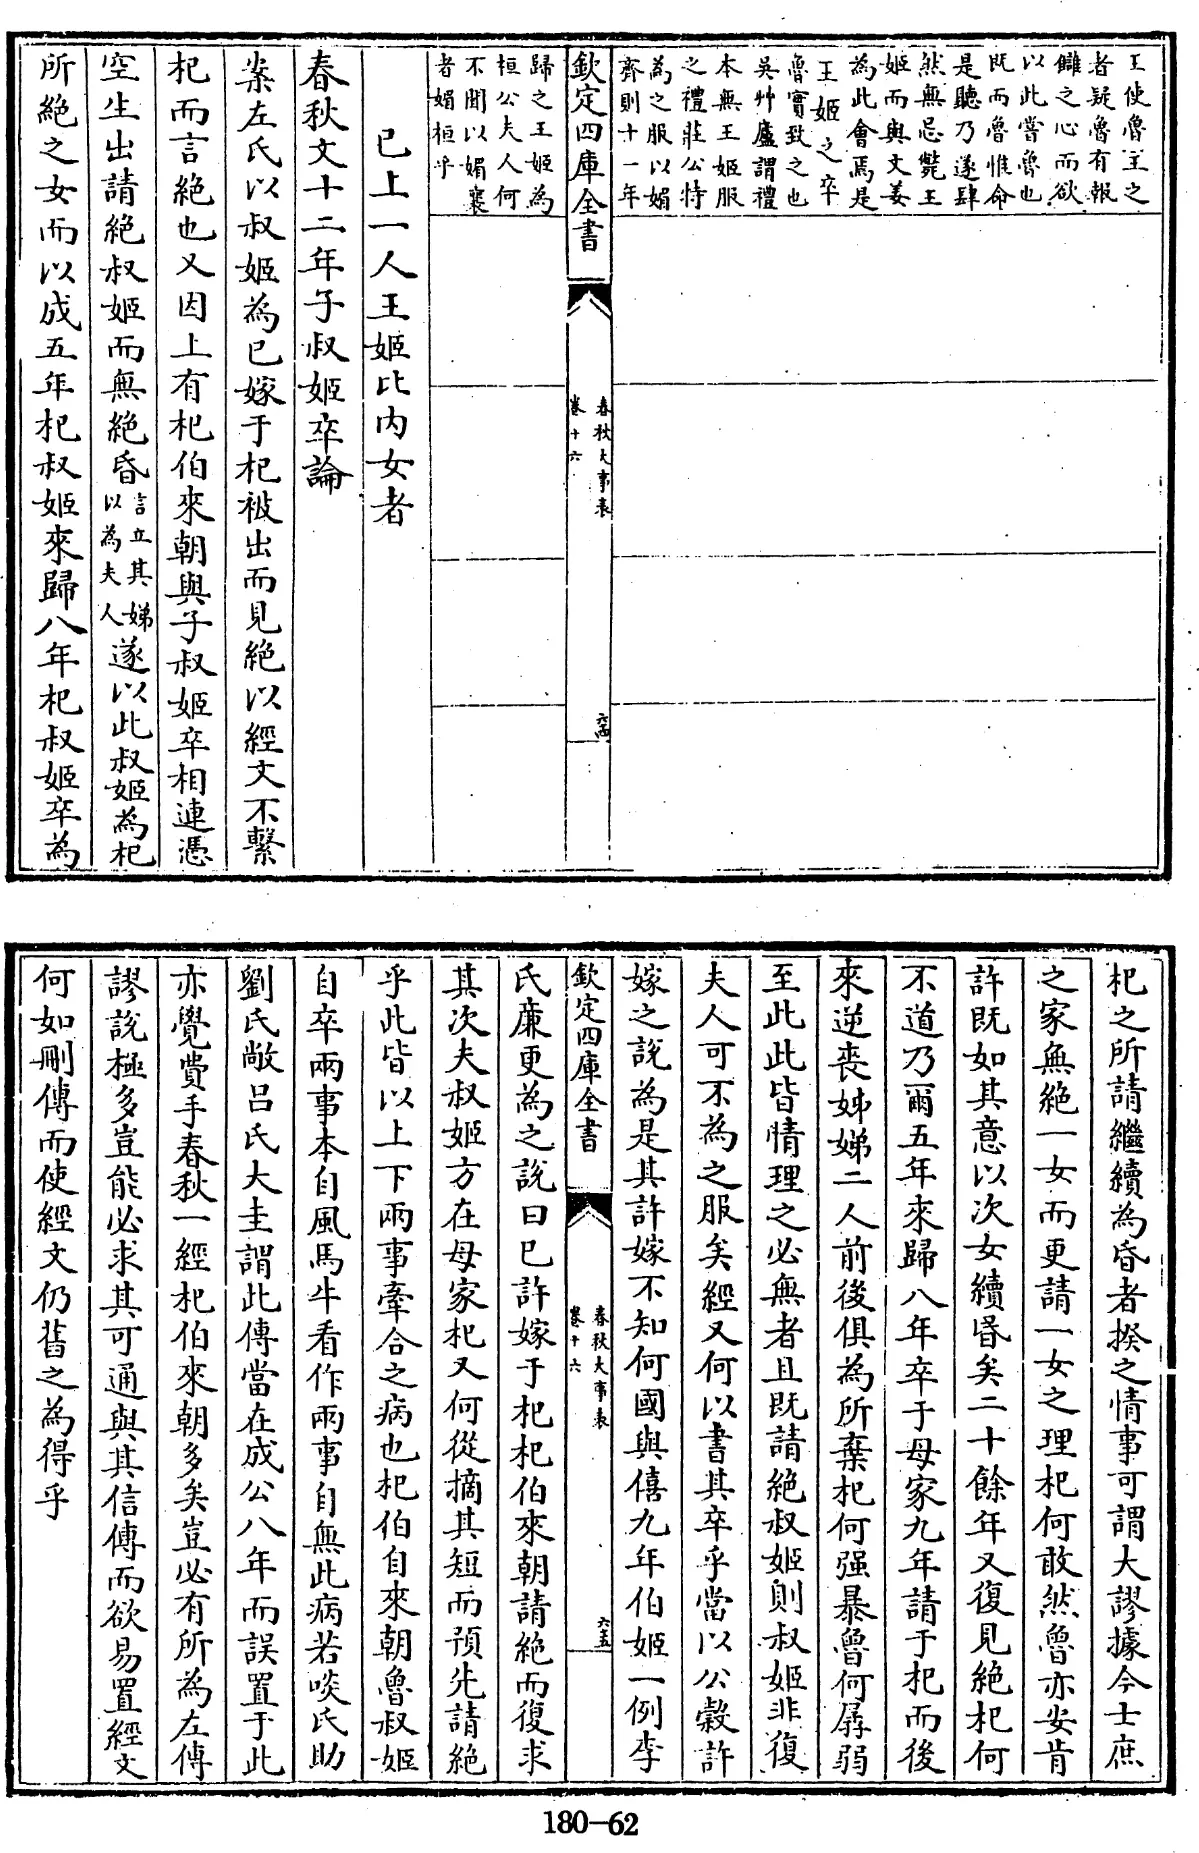 王使魯主之
者疑魯有報
讎之心而欲
以此嘗魯也
既而魯惟命
是聽乃遂肆
然無忌斃王
姬而與文姜
為此會焉是
王姬之卒
魯實致之也
吳艸廬謂禮
本無王姬服
之禮莊公特
為之服以媚
齊則十一年
欽定四庫全書
春秋大事表
卷十六
六四
歸之王姬為
桓公夫人何
不聞以媚襄
者媚桓乎
已上一人王姬比内女者
春秋文十二年子叔姬卒論
案左氏以叔姬為已嫁于杞被出而見絶以經文不繫
杞而言絶也又因上有杞伯來朝與子叔姬卒相連憑
空生出請絶叔姬而無絶昏言立其娣以為夫人遂以此叔姬為杞
所絶之女而以成五年杞叔姬來歸八年杞叔姬卒為
杞之所請繼續為昏者揆之情事可謂大謬據今士庶
之家無絶一女而更請一女之理杞何敢然魯亦安肯
許既如其意以次女續昏矣二十餘年又復見絶杞何
不道乃爾五年來歸八年卒于母家九年請于杞而後
來逆喪姊娣二人前後俱為所棄杞何强暴魯何孱弱
至此此皆情理之必無者且既請絶叔姬則叔姬非復
夫人可不為之服矣經又何以書其卒乎當以公穀許
嫁之說為是其許嫁不知何國與僖九年伯姬一例李
欽定四庫全書
春秋大事表
卷十六
六五
氏廉更為之說曰已許嫁于杞杞伯來朝請絶而復求
其次夫叔姬方在母家杞又何從摘其短而預先請絶
乎此皆以上下兩事牽合之病也杞伯自來朝魯叔姬
自卒兩事本自風馬牛看作兩事自無此病若啖氏助
劉氏敞吕氏大圭謂此傳當在成公八年而誤置于此
亦覺費手春秋一經杞伯來朝多矣豈必有所為左傳
謬說極多豈能必求其可通與其信傳而欲易置經文
何如刪傳而使經文仍舊之為得乎
180-62